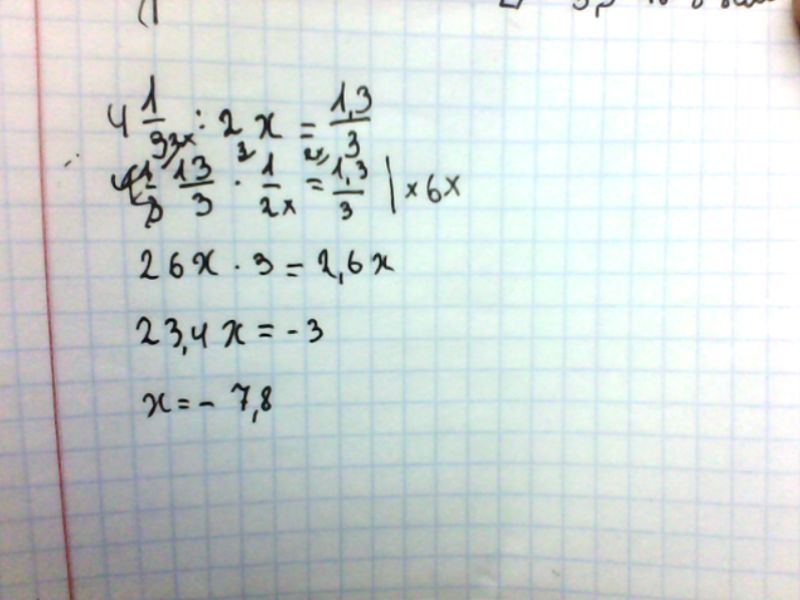 4 1/3 : 2x = 1,3/3
13/3 · 1/2x = 1,3/3 | × 6x
26x · 3 = 2,6x
23,4x = - 3
x = - 7,8